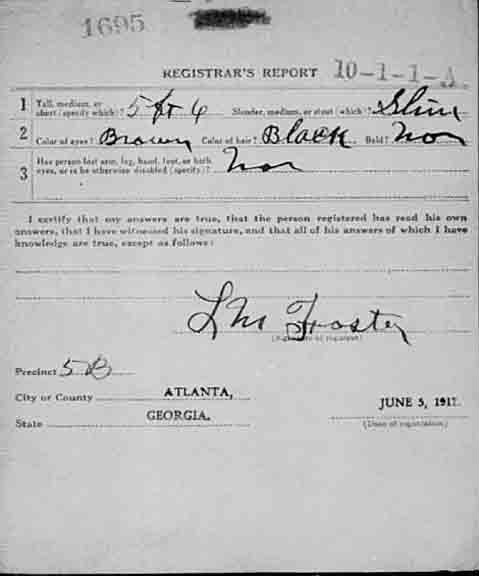 1695
REGISTRAR'S REPORT 10-1-1-A
1 Tall, medium, or short (specify which)? 5 ft 6 Slender, medium, or stout (which)? Slim
2 Color of eyes? Brown Color of hair? Black Bald? Non
3 Has person lost arm, leg, hand, foot, or both
eyes, or is he otherwise disabled (specify)? Non
I certify that my answers are true, that the person registered has read his own
answers, that I have witnessed his signature, and that all of his answers of which I have
knowledge are true, except as follows:
L M Froster
(Signature of registrar)
Precinct 5 B
City or County ATLANTA,
State GEORGIA.
JUNE 5, 1917.
(Date of registration)